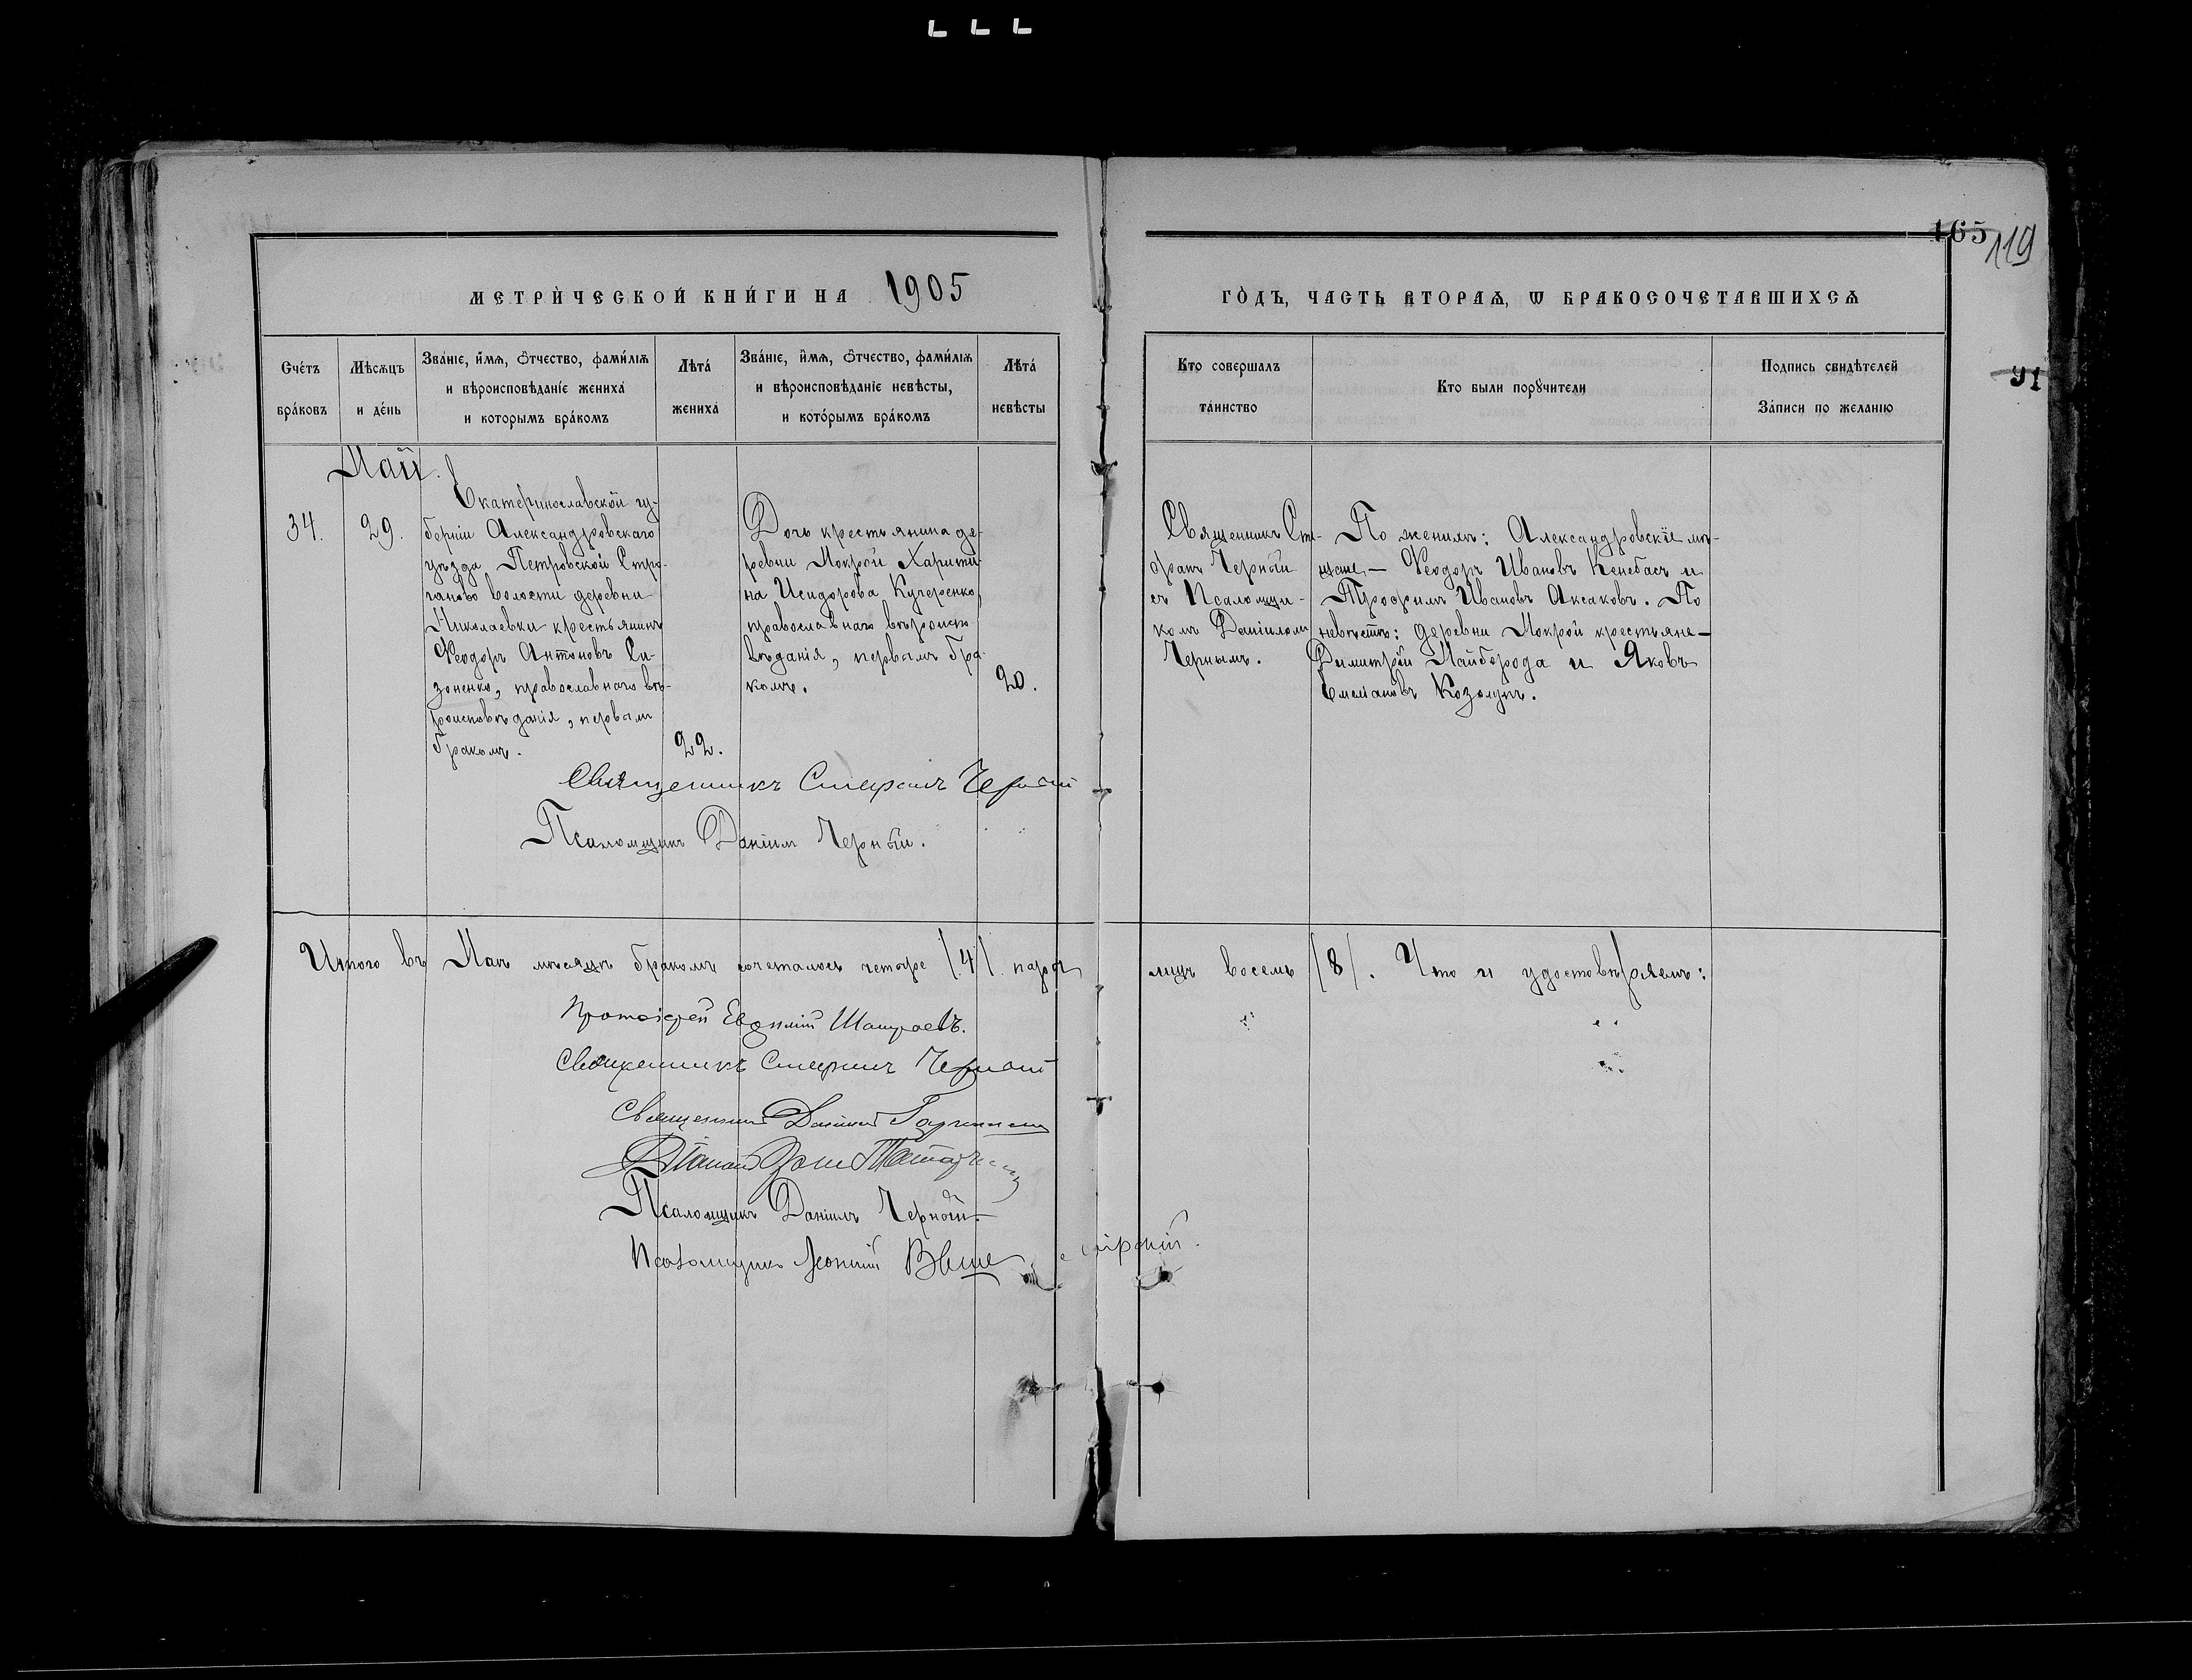 465
119
МЕТРИ́ЧЕСКОЙ КНИ́ГИ НА 1905
ГО́ДЪ, ЧАСТЬ ВТОРАѦ, Ѡ БРАКОСОЧЕТАВШИХСѦ
Сче́тъ бра́ковъ
Мѣ́сѧцъ и де́нь
Зва́нїе, и́мѧ, ѻ҆́тчество, фами́лїѧ и вѣроисповѣ́данїе жениха́ и которымъ бра́комъ
Лѣта́ жениха́
Зва́нїе, и́мѧ, ѻ҆́тчество, фами́лїѧ и вѣроисповѣ́данїе невѣ́сты, и кото́рымъ бра́комъ
Лѣта́ невѣ́сты
Кто совершалъ та́инство
Кто были порꙋчители
Подпись свидѣтелей За́писи по желанїю
91
Май.
34.
29.
Екатеринославской гу-
берніи Александровскаго
уѣзда Петровской Стро-
ганово волости деревни
Николаевки крестьянинъ
Ѳеодоръ Антоновъ Си-
зоненко, православнаго вѣ-
роисповѣданія, первымъ
бракомъ.
22.
Дочь крестьянина де-
ревни Мокрой Харити-
на Исидорова Кучеренко,
православнаго вѣроиспо
вѣданія, первымъ бра-
комъ.
20.
Священникъ Сте-
фанъ Черный
съ Псаломщи-
комъ Даніиломъ
Чернымъ.
По женихѣ: Александровскіе мѣ-
щане, — Ѳеодоръ Ивановъ Кенебасъ и
Трофимъ Ивановъ Аксаковъ. По
невѣстѣ: деревни Мокрой крестьяне —
Димитрій Майборода и Яковъ
Емеліановъ Козолупъ.
Священникъ Стефанъ Черный
Псаломщикъ Даніилъ Черный.
Итого въ Маѣ мѣсяцѣ бракомъ сочеталось четыре /4/. паръ
лицъ восемь /8/. Что и удостовѣряемъ:
Протоіерей Евѳимій
Священникъ Стефанъ Черный
Священникъ Даніилъ
Діаконъ
Псаломщикъ Даніилъ Черный.
Псаломщикъ